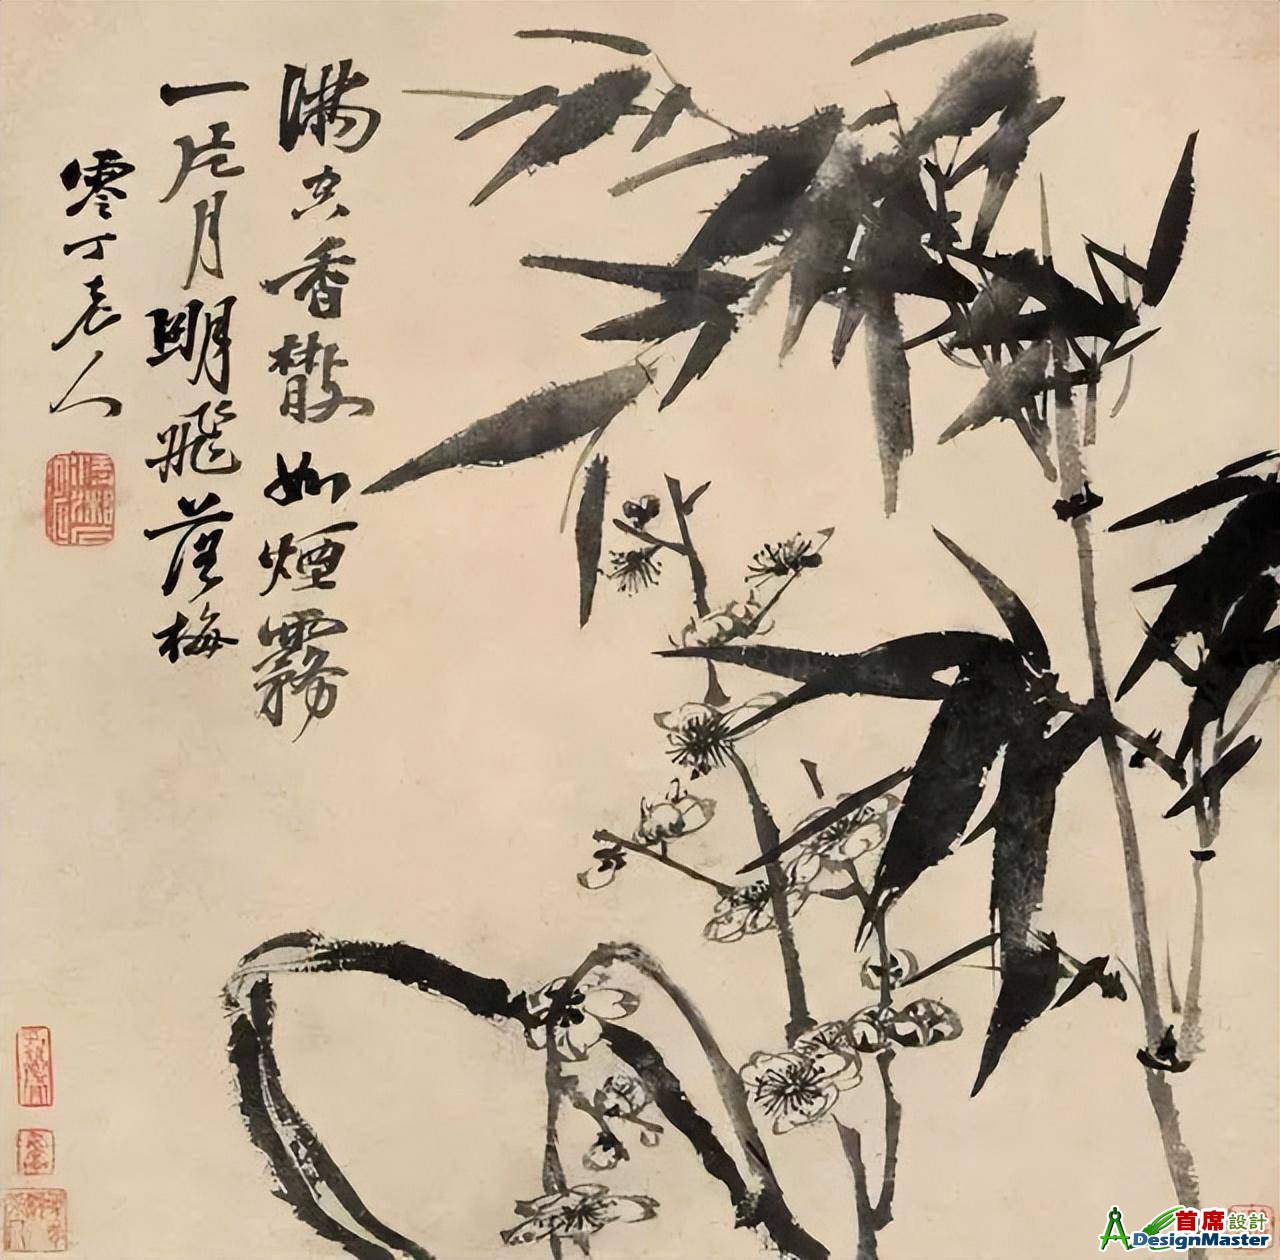 滿空香散如煙霧
一片月明飛落梅
零丁老人
首席設計
DesignMaster